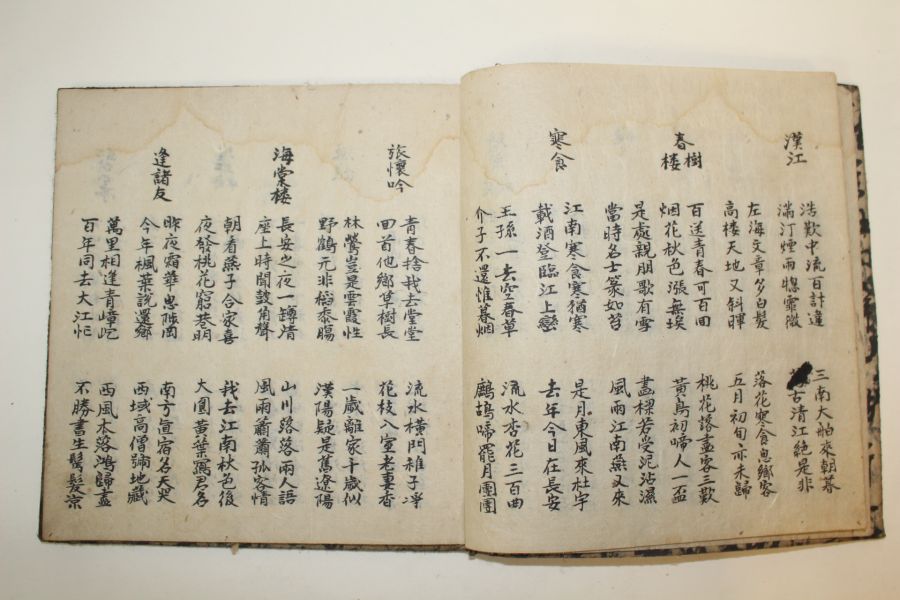 漢江
浩歎中流百計違 三南大舶來朝暮
滿汀煙雨惚霏微 古清江絕是非
左海文章多白髮 落花寒食思鄉客
高楼天地又斜暉 五月初旬亦未歸
春樹楼
百送青春可百回 桃花落盡客三歎
烟花秋色漲無埃 黃鳥初啼人一盃
是處親朋歌有雪 畵樑若受泥沾濕
當時名士篆如苔 風雨江南燕又來
寒食
江南寒食寒猶寒 是月東風來杜宇
載酒登臨江上巒 去年今日在長安
王孫一去空春草 流水杏花三百曲
介子不還惟暮烟 鷓鴣啼罷月團團
旅懷吟
青春捨我去堂堂 流水橫門稚子凈
回首他鄉草樹長 花枝入室老妻香
林鶯豈是雲霞性 一歲離家千歲似
野鶴元非稻黍腸 漢陽疑是舊遼陽
海棠楼
長安之夜一罇清 山川落落兩人語
座上時聞鼓角聲 風雨蕭蕭孤客情
朝看燕子令家喜 我去江南秋色後
夜發桃花窮巷明 大園黃葉寫君名
逢諸友
昨夜霜華思陟岡 南方直宿名天
今年楓葉說還鄉 西域高僧號地藏
萬里相逢青嶂屹 西風木落鴻歸盡
百年同去大江忙 不勝書生鬢髮